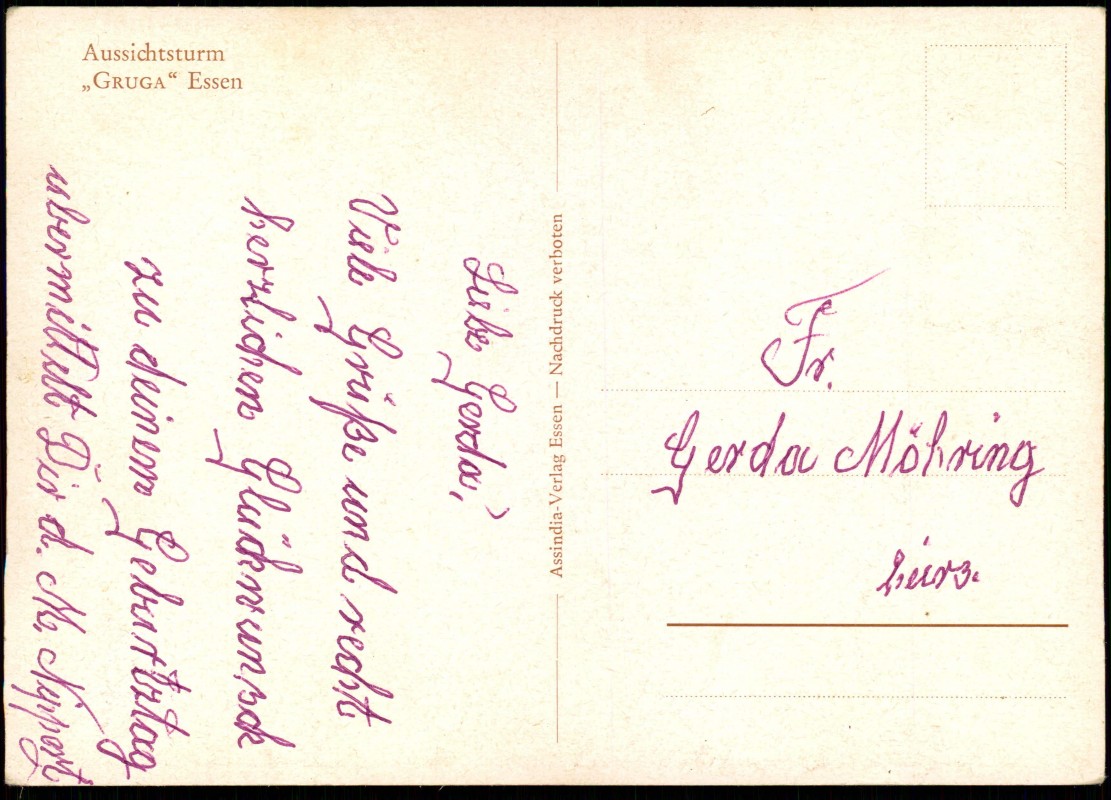 Aussichtsturm
„GRUGA“ Essen
Liebe Gerda,
Viele Grüße und recht
herzlichen Glückwunsch
zu deinem Geburtztag
übermittelt Dir d. M.
Assindia-Verlag Essen — Nachdruck verboten
Fr.
Gerda Möhring
hiers.